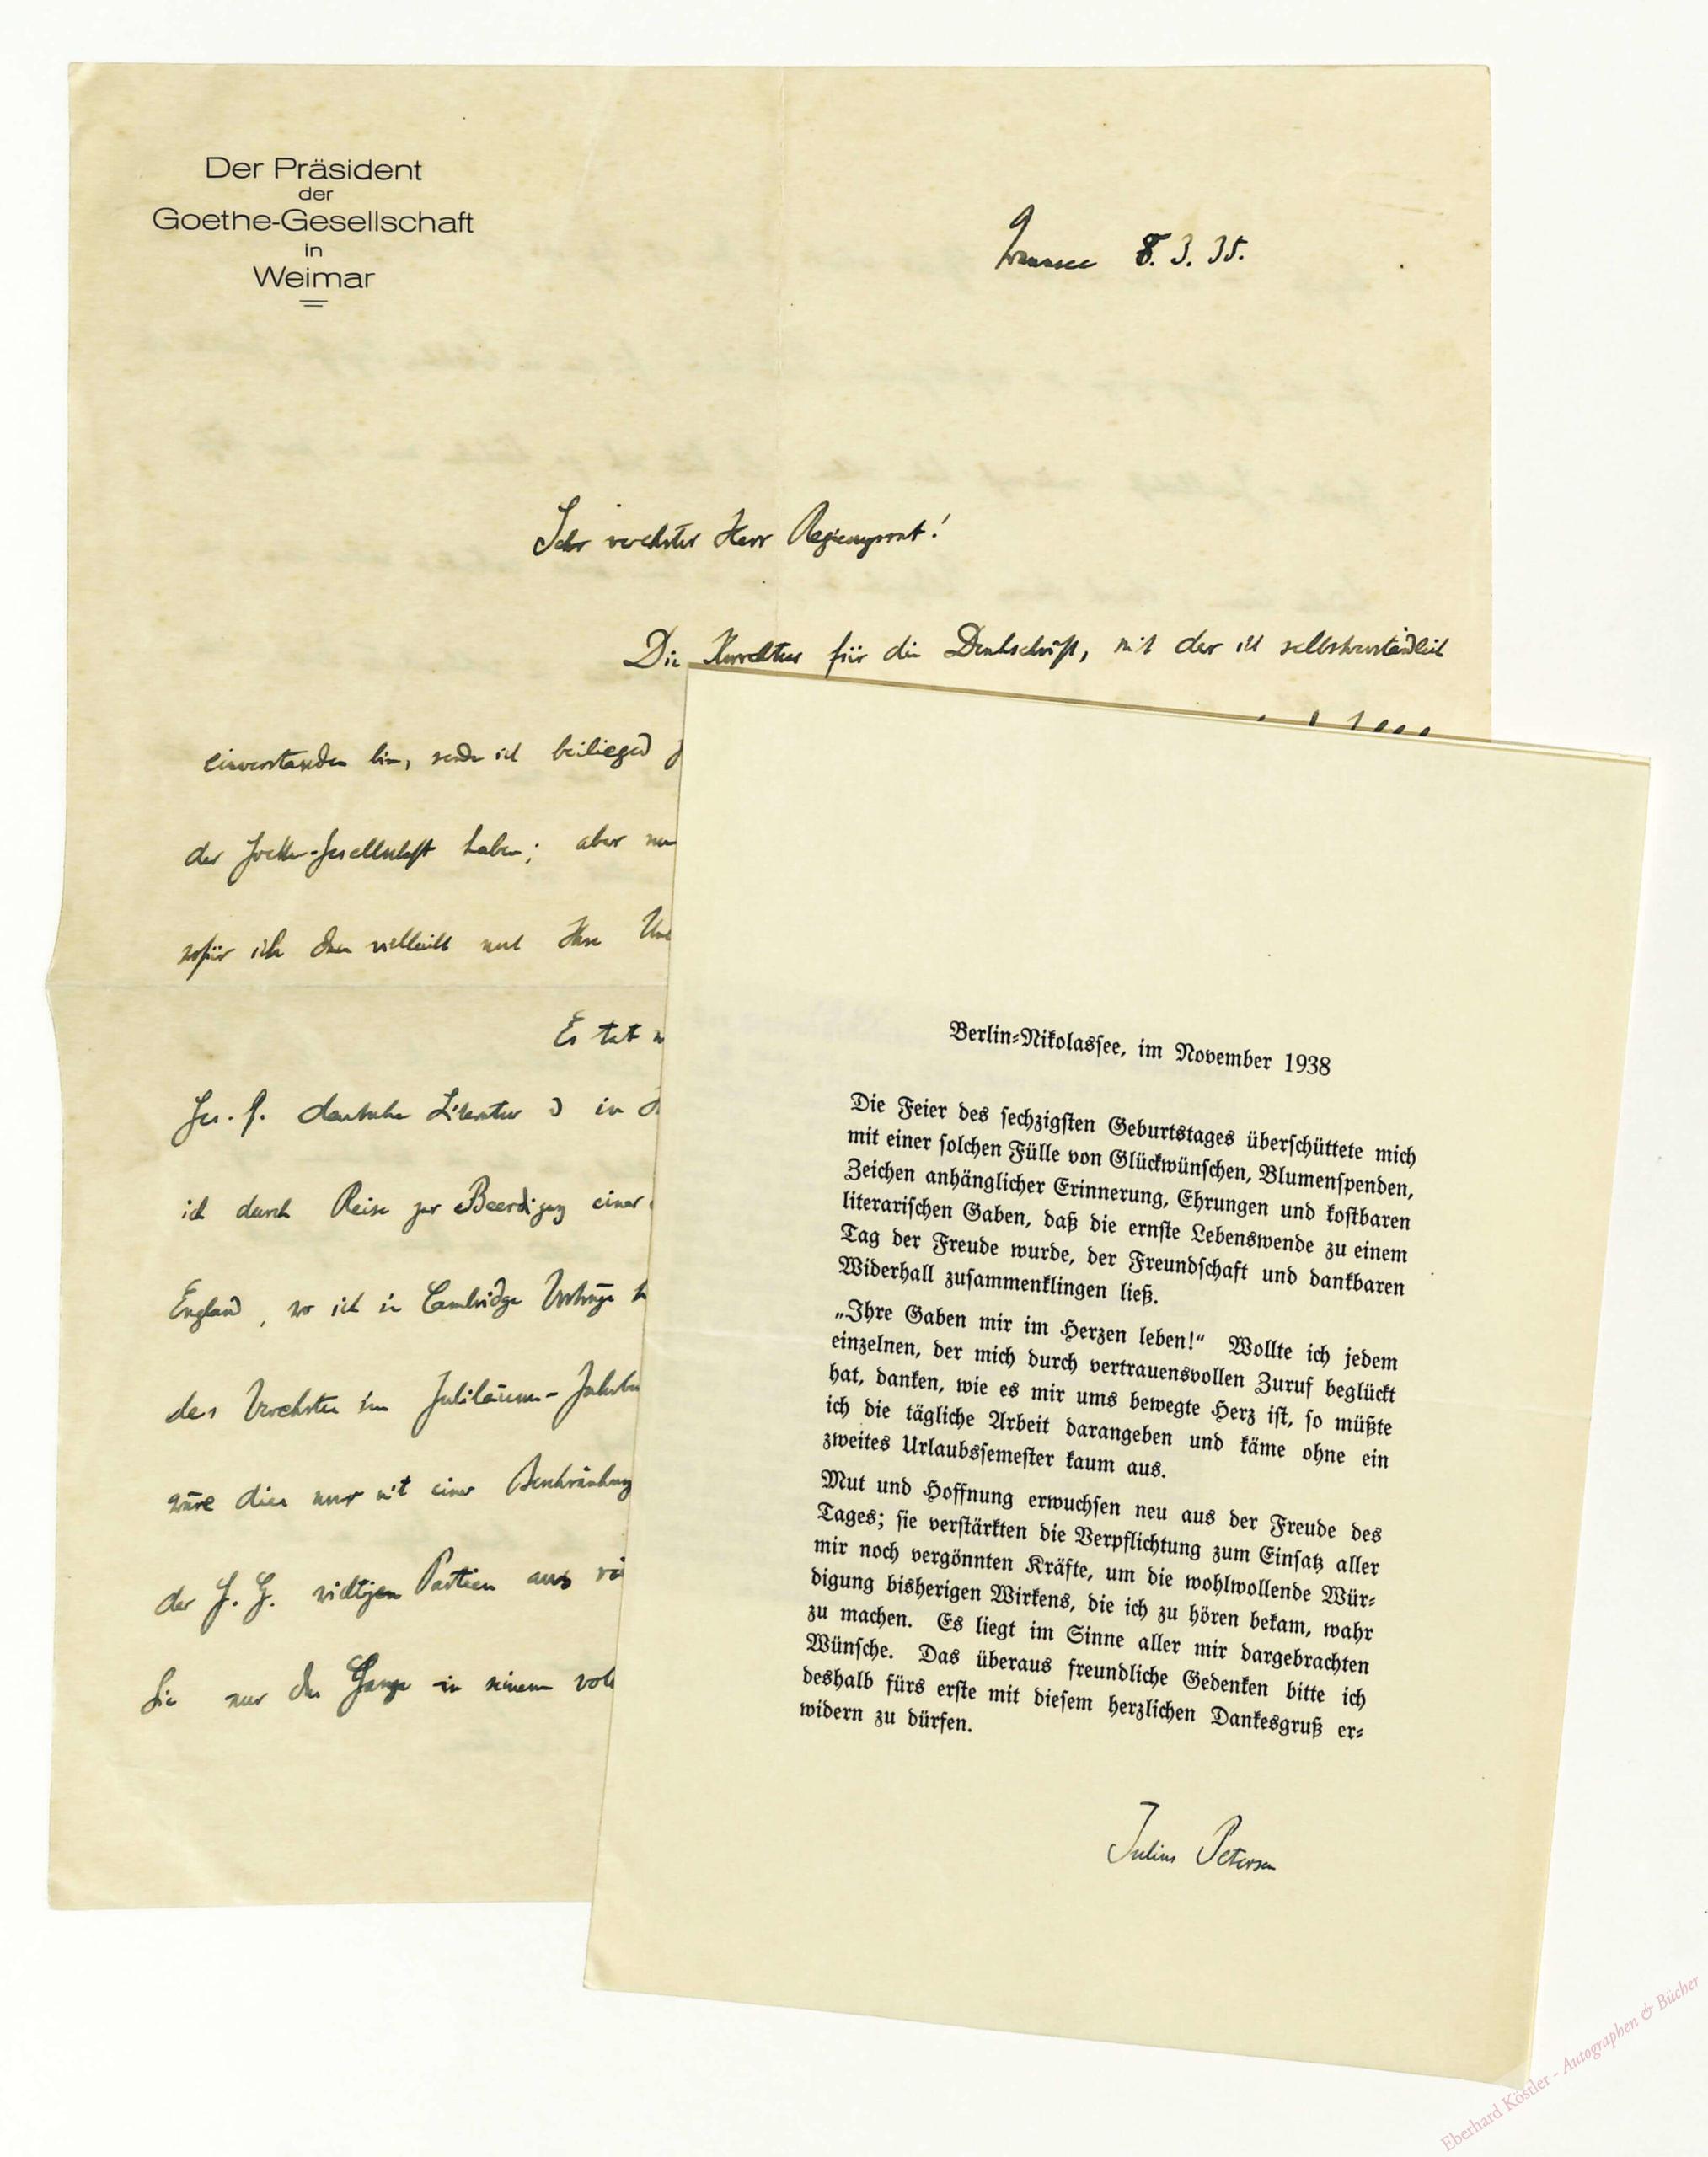 Der Präsident
der
Goethe-Gesellschaft
in
Weimar
Wannsee 8. 3. 35.
Sehr verehrter Herr Regierungsrat!
Die Korrektur für die Denkschrift, mit der ich selbstverständlich
einverstanden bin, sende ich beiliegend
der Goethe-Gesellschaft haben; aber
wofür ich dann vielleicht noch Ihre
Es tat
Ges. f. deutsche Literatur in
ich durch Reise zur Beerdigung einer
England, wo ich in Cambridge Vorträge
des Verehrten im Jubiläums-Jahrbu
wäre dies nur mit einer Beschränkung
der G. G. wichtigen Partien aus
Sie nur das Ganze in seinem
Berlin-Nikolassee, im November 1938
Die Feier des sechzigsten Geburtstages überschüttete mich
mit einer solchen Fülle von Glückwünschen, Blumenspenden,
Zeichen anhänglicher Erinnerung, Ehrungen und kostbaren
literarischen Gaben, daß die ernste Lebenswende zu einem
Tag der Freude wurde, der Freundschaft und dankbaren
Widerhall zusammenklingen ließ.
„Ihre Gaben mir im Herzen leben!“ Wollte ich jedem
einzelnen, der mich durch vertrauensvollen Zuruf beglückt
hat, danken, wie es mir ums bewegte Herz ist, so müßte
ich die tägliche Arbeit darangeben und käme ohne ein
zweites Urlaubssemester kaum aus.
Mut und Hoffnung erwuchsen neu aus der Freude des
Tages; sie verstärkten die Verpflichtung zum Einsatz aller
mir noch vergönnten Kräfte, um die wohlwollende Wür-
digung bisherigen Wirkens, die ich zu hören bekam, wahr
zu machen. Es liegt im Sinne aller mir dargebrachten
Wünsche. Das überaus freundliche Gedenken bitte ich
deshalb fürs erste mit diesem herzlichen Dankesgruß er-
widern zu dürfen.
Julius Petersen
Eberhard Köstler - Autographen & Bücher